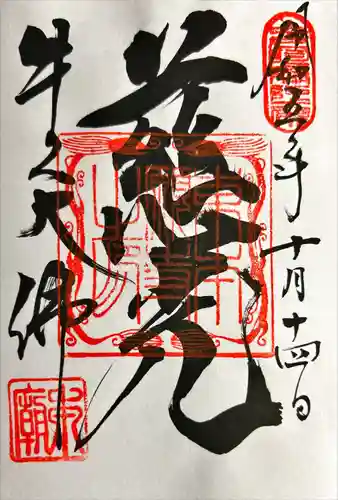 令和五年十月十四日
慈光
牛久大佛